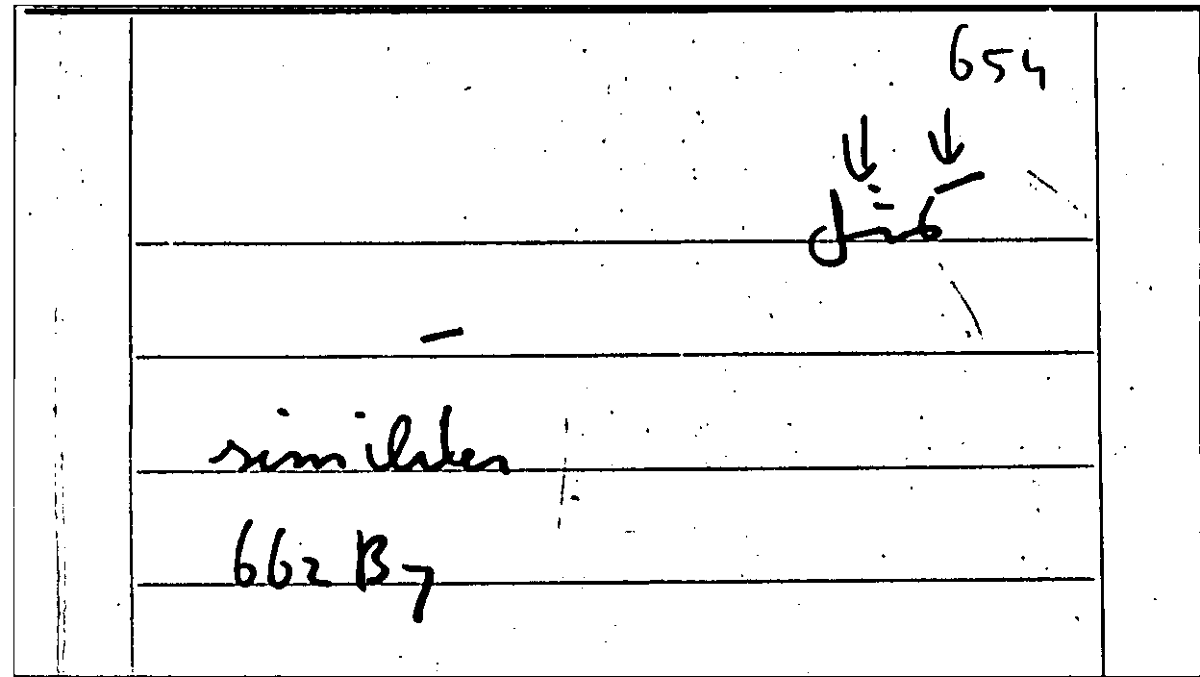 654
similiter
662 B 7